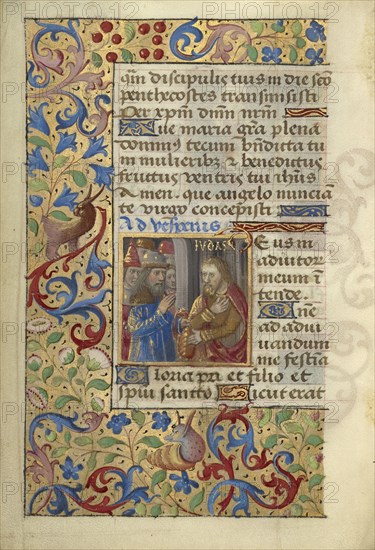 qm discipulis tuis in die sco
penthecostes transmisisti
Per xpm dnm nrm
Aue maria gra plena
dominus tecum bndicta tu
in mulieribz z benedictus
fructus ventris tui ihus
Amen. que angelo nuncian
te virgo concepisti
Ad vesperas
IVDAS
Deus in
adiutor
meum in
tende.
Dne
ad adiu
uandum
me festina
Gloria pri et filio et
spui sancto Sicut erat